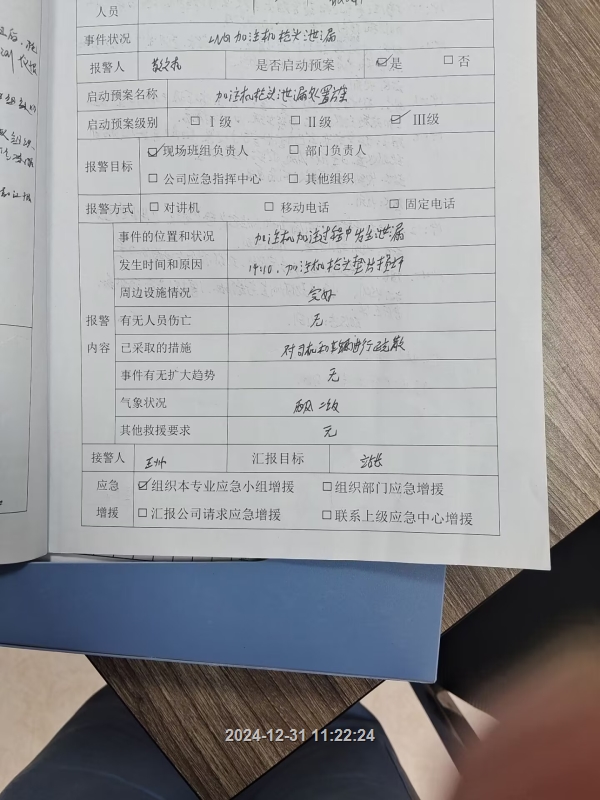 人员
事件状况 LNG加注机枪头泄漏
报警人 是否启动预案 ☑是 □否
启动预案名称 加注机枪头泄漏处置方案
启动预案级别 □Ⅰ级 □Ⅱ级 ☑Ⅲ级
报警目标 ☑现场班组负责人 □部门负责人
□公司应急指挥中心 □其他组织
报警方式 □对讲机 □移动电话 ☑固定电话
事件的位置和状况 加注机加注过程中发生泄漏
发生时间和原因 14:10. 加注机枪头垫片损坏
周边设施情况 完好
报警 有无人员伤亡 无
内容 已采取的措施 对司机和车辆进行疏散
事件有无扩大趋势 无
气象状况 西风 二级
其他救援要求 无
接警人 汇报目标 站长
应急 ☑组织本专业应急小组增援 □组织部门应急增援
增援 □汇报公司请求应急增援 □联系上级应急中心增援
2024-12-31 11:22:24